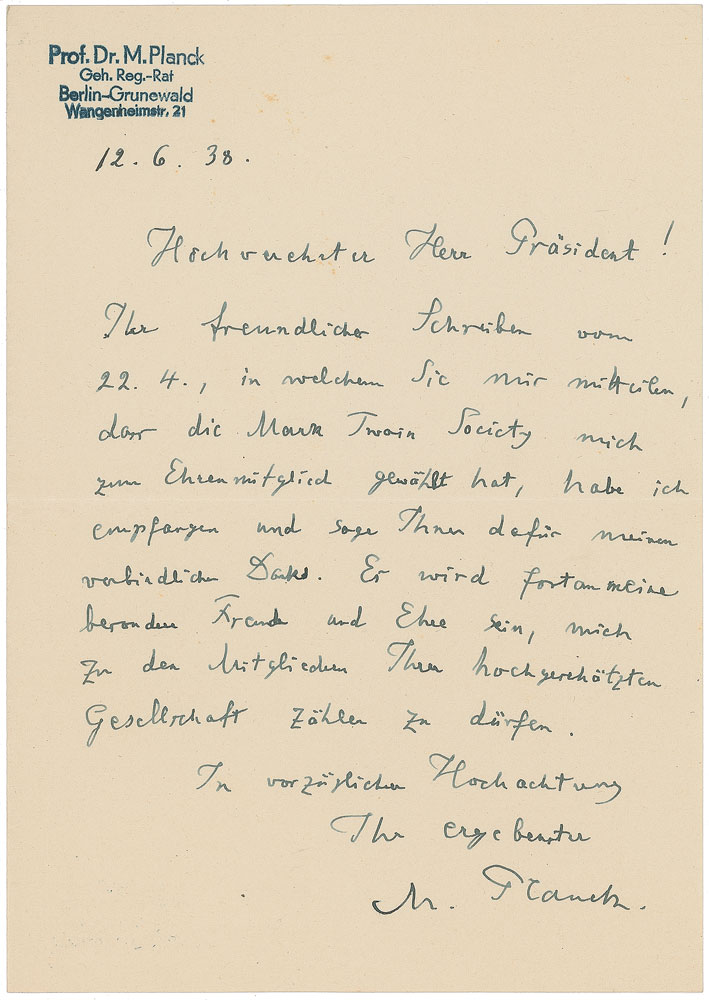 Prof. Dr. M. Planck
Geh. Reg.-Rat
Berlin-Grunewald
Wangenheimstr. 21
12. 6. 38.
Hochverehrter Herr Präsident!
Ihr freundliches Schreiben vom
22. 4., in welchem Sie mir mitteilen,
dass die Mark Twain Society mich
zum Ehrenmitglied gewählt hat, habe ich
empfangen und sage Ihnen dafür meinen
verbindlichen Dank. Es wird fortan meine
besondere Freude und Ehre sein, mich
zu den Mitgliedern Ihrer hochgeschätzten
Gesellschaft zählen zu dürfen.
In vorzüglicher Hochachtung
Ihr ergebenster
M. Planck.